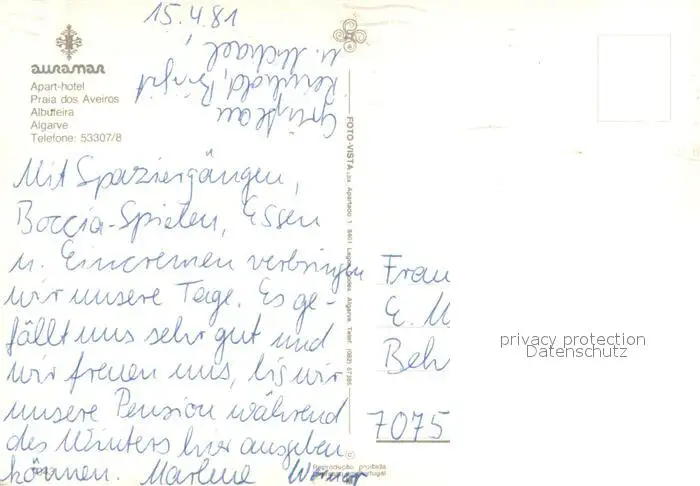 15.4.81
auramar
Apart-hotel
Praia dos Aveiros
Albufeira
Algarve
Telefone: 53307/8
Mit Spaziergängen,
Boccia-Spielen, Essen
u. Eincremen verbringen
wir unsere Tage. Es ge-
fällt uns sehr gut und
wir freuen uns, bis wir
unsere Pension während
des Winters hier ausgeben
können. Marlene Werner
Grüße an
Reinhold, Birgit
u. Michael,
FOTO-VISTA
Reprodução proibida
Frau
E. M
Beh
7075
privacy protection
Datenschutz